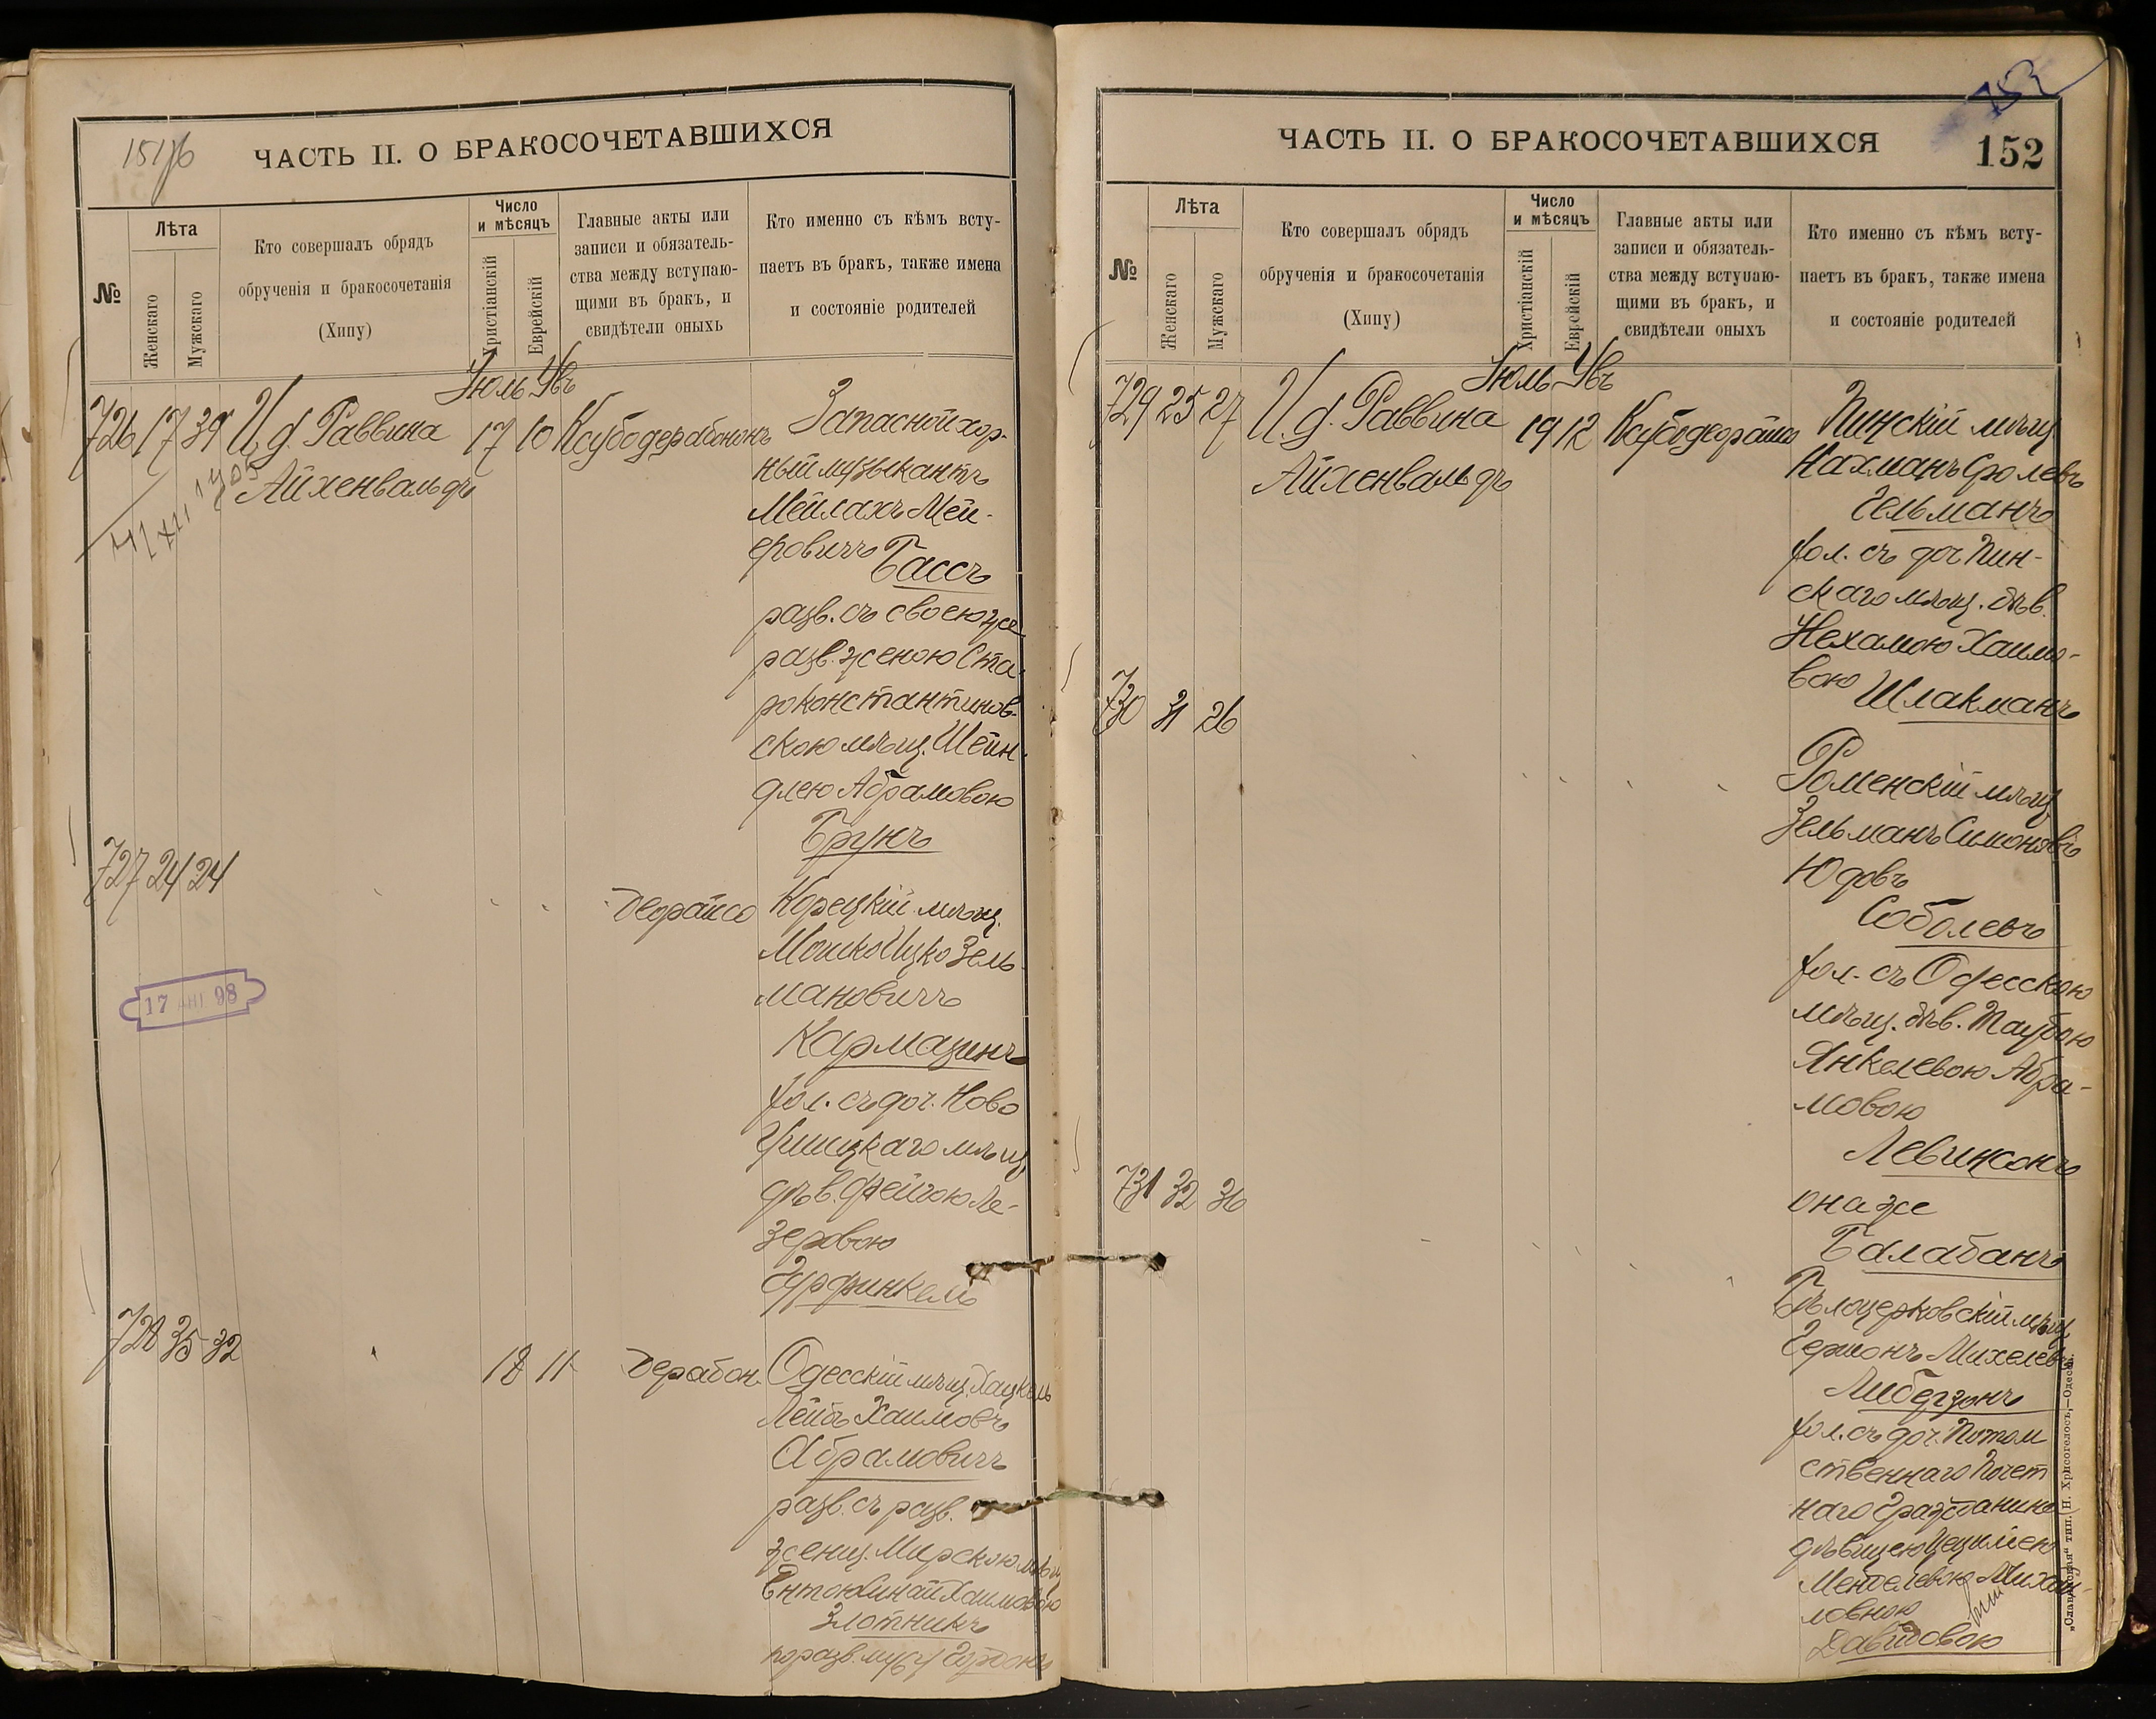 151/б
ЧАСТЬ II. О БРАКОСОЧЕТАВШИХСЯ
№
Лѣта
Женскаго
Мужскаго
Кто совершалъ обрядъ
обрученія и бракосочетанія
(Хипу)
Число
и мѣсяцъ
Христіанскій
Еврейскій
Главные акты или
записи и обязатель-
ства между вступаю-
щими въ бракъ, и
свидѣтели оныхъ
Кто именно съ кѣмъ всту-
паетъ въ бракъ, также имена
и состояніе родителей
Іюль Увъ
726 17 39 И. д. Раввина 17 10
Айхенвальдъ
Запасной хор-
ный музыкантъ
Мейлахъ Мей-
еровичъ Бассъ
разв. съ своею же
разв. женою Ста-
роконстантинов-
скою мѣщ. Шейн-
длею Абрамовою
Брунъ
727 24 24
Деорайсо Корецкій мѣщ.
Мошко Ицко Зель-
мановичъ
Кармазинъ
хол. съ доч. Ново
Ушицкаго мѣщ.
дѣв. Фейгою Ле-
зеровою
Гурфинкель
17 98
728 35 32 18 11 Дерабон. Одесскій мѣщ. Хацкель
Лейбъ Хаимовъ
Абрамовичъ
разв. съ разв.
женщ. Мирскою мѣщ
Хаимовою
Злотникъ
по разв. мужу Гордонъ
152
ЧАСТЬ II. О БРАКОСОЧЕТАВШИХСЯ
152
№
Лѣта
Женскаго
Мужскаго
Кто совершалъ обрядъ
обрученія и бракосочетанія
(Хипу)
Число
и мѣсяцъ
Христіанскій
Еврейскій
Главные акты или
записи и обязатель-
ства между вступаю-
щими въ бракъ, и
свидѣтели оныхъ
Кто именно съ кѣмъ всту-
паетъ въ бракъ, также имена
и состояніе родителей
Іюль Увъ
729 25 27 И. д. Раввина 19 12
Айхенвальдъ
Пинскій мѣщ
Нахманъ Сролевъ
Гельманъ
хол. съ доч. Пин-
скаго мѣщ. дѣв.
Нехамою Хаимо-
вою Шлакманъ
730 31 26
Роменскій мѣщ
Зельманъ Симоновъ
Юдовъ
Соболевъ
хол. съ Одесскою
мѣщ. дѣв. Таубою
Янкелевою Абра-
мовою
Левинсонъ
она же
Балабанъ
731 32 36
Бѣлоцерковскій мѣщ
Гершонъ Михелевъ
Либерзонъ
хол. съ доч. Потом
ственнаго Почет
наго Гражданина
дѣвицею Цецилiею
Менделевою Михай-
ловною
Давидовою
„Славянская“ тип. Н. Хрисогелосъ,—Одесса.